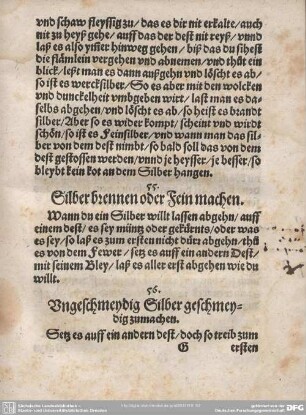 vnd schaw fleyssig zu / das es dir nit erkalte / auch
nit zu heyß gehe / auff das der dest nit reyß / vnnd
laß es also ymer hinweg gehen / biß das du sihest
die flämlein vergehen vnd abnemen / vnd thüt ein
blick / leßt man es dann außgehn vnd löscht es ab /
so ist es wercksilber / So es aber mit den wolcken
vnd dunckelheit vmbgeben wirt / last man es da-
selbs abgehen / vnd löscht es ab / so heist es brandt
silber / Aber so es wider kompt / scheint vnd wirdt
schön / so ist es Feinsilber / vnd wann man das sil-
ber von dem dest nimbt / so bald soll das von dem
dest gestossen werden / vnnd je heysser / je besser / so
bleybt kein kot an dem Silber hangen.
55.
Silber brennen oder Fein machen.
Wann du ein Silber willt lassen abgehn / auff
einem dest / es sey müntz oder gekürnts / oder was
es sey / so laß es zum ersten nicht dürr abgehn / thü
es von dem Fewer / setz es auff ein andern Dest /
mit seinem Bley / laß es aller erst abgehen wie du
willt.
56.
Vngeschmeydig Silber geschmey-
dig zumachen.
Setz es auff ein andern dest / doch so treib zum
G ersten